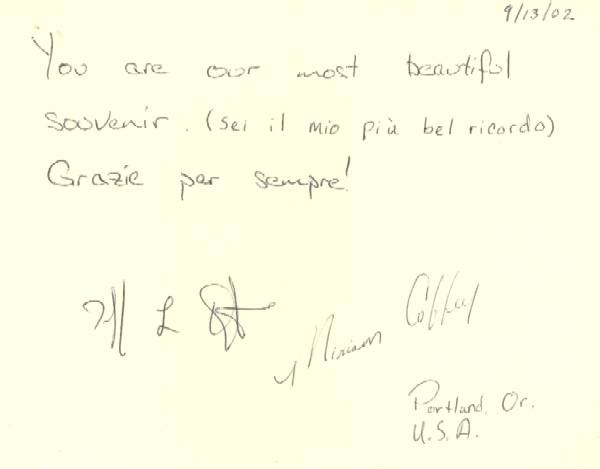 9/13/02
You are our most beautiful
souvenir. (sei il mio più bel ricordo)
Grazie per sempre!
L
Miriam Coffey
Portland, Or.
U.S.A.